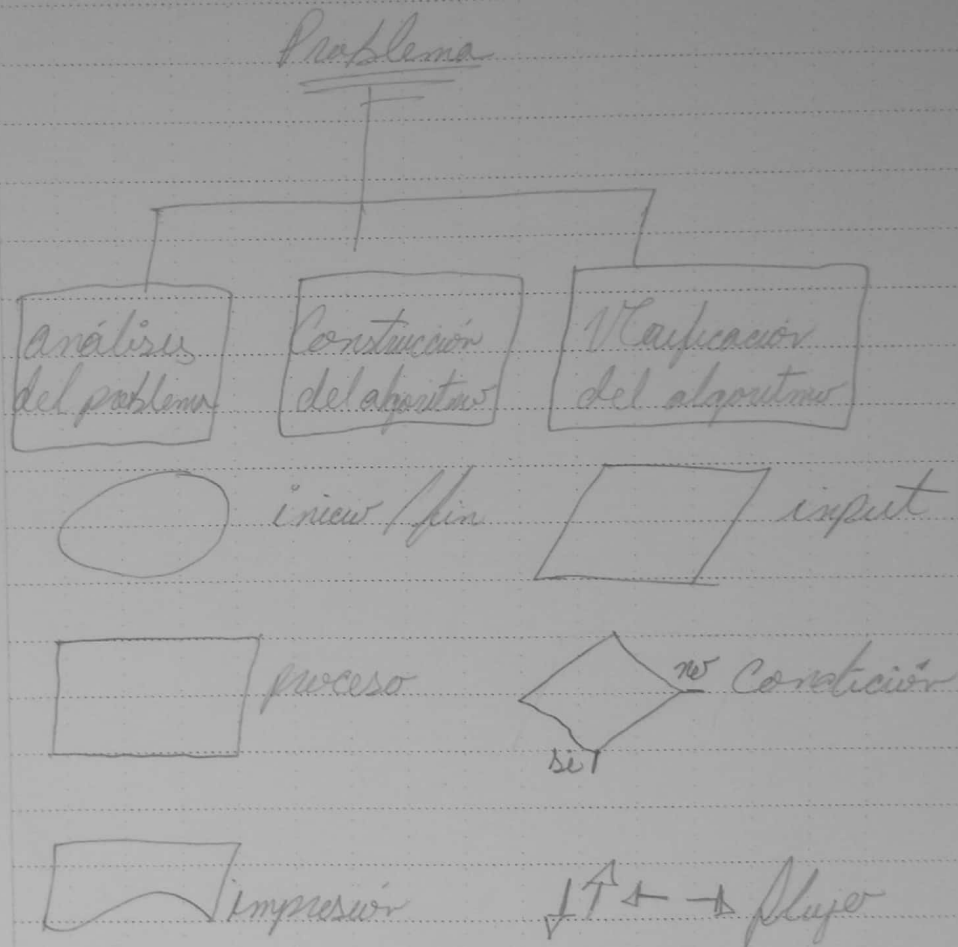 Problema
análisis
del problema
Construcción
del algoritmo
Verificación
del algoritmo
inicio / fin
input
proceso
no
Condición
si
impresión
flujo